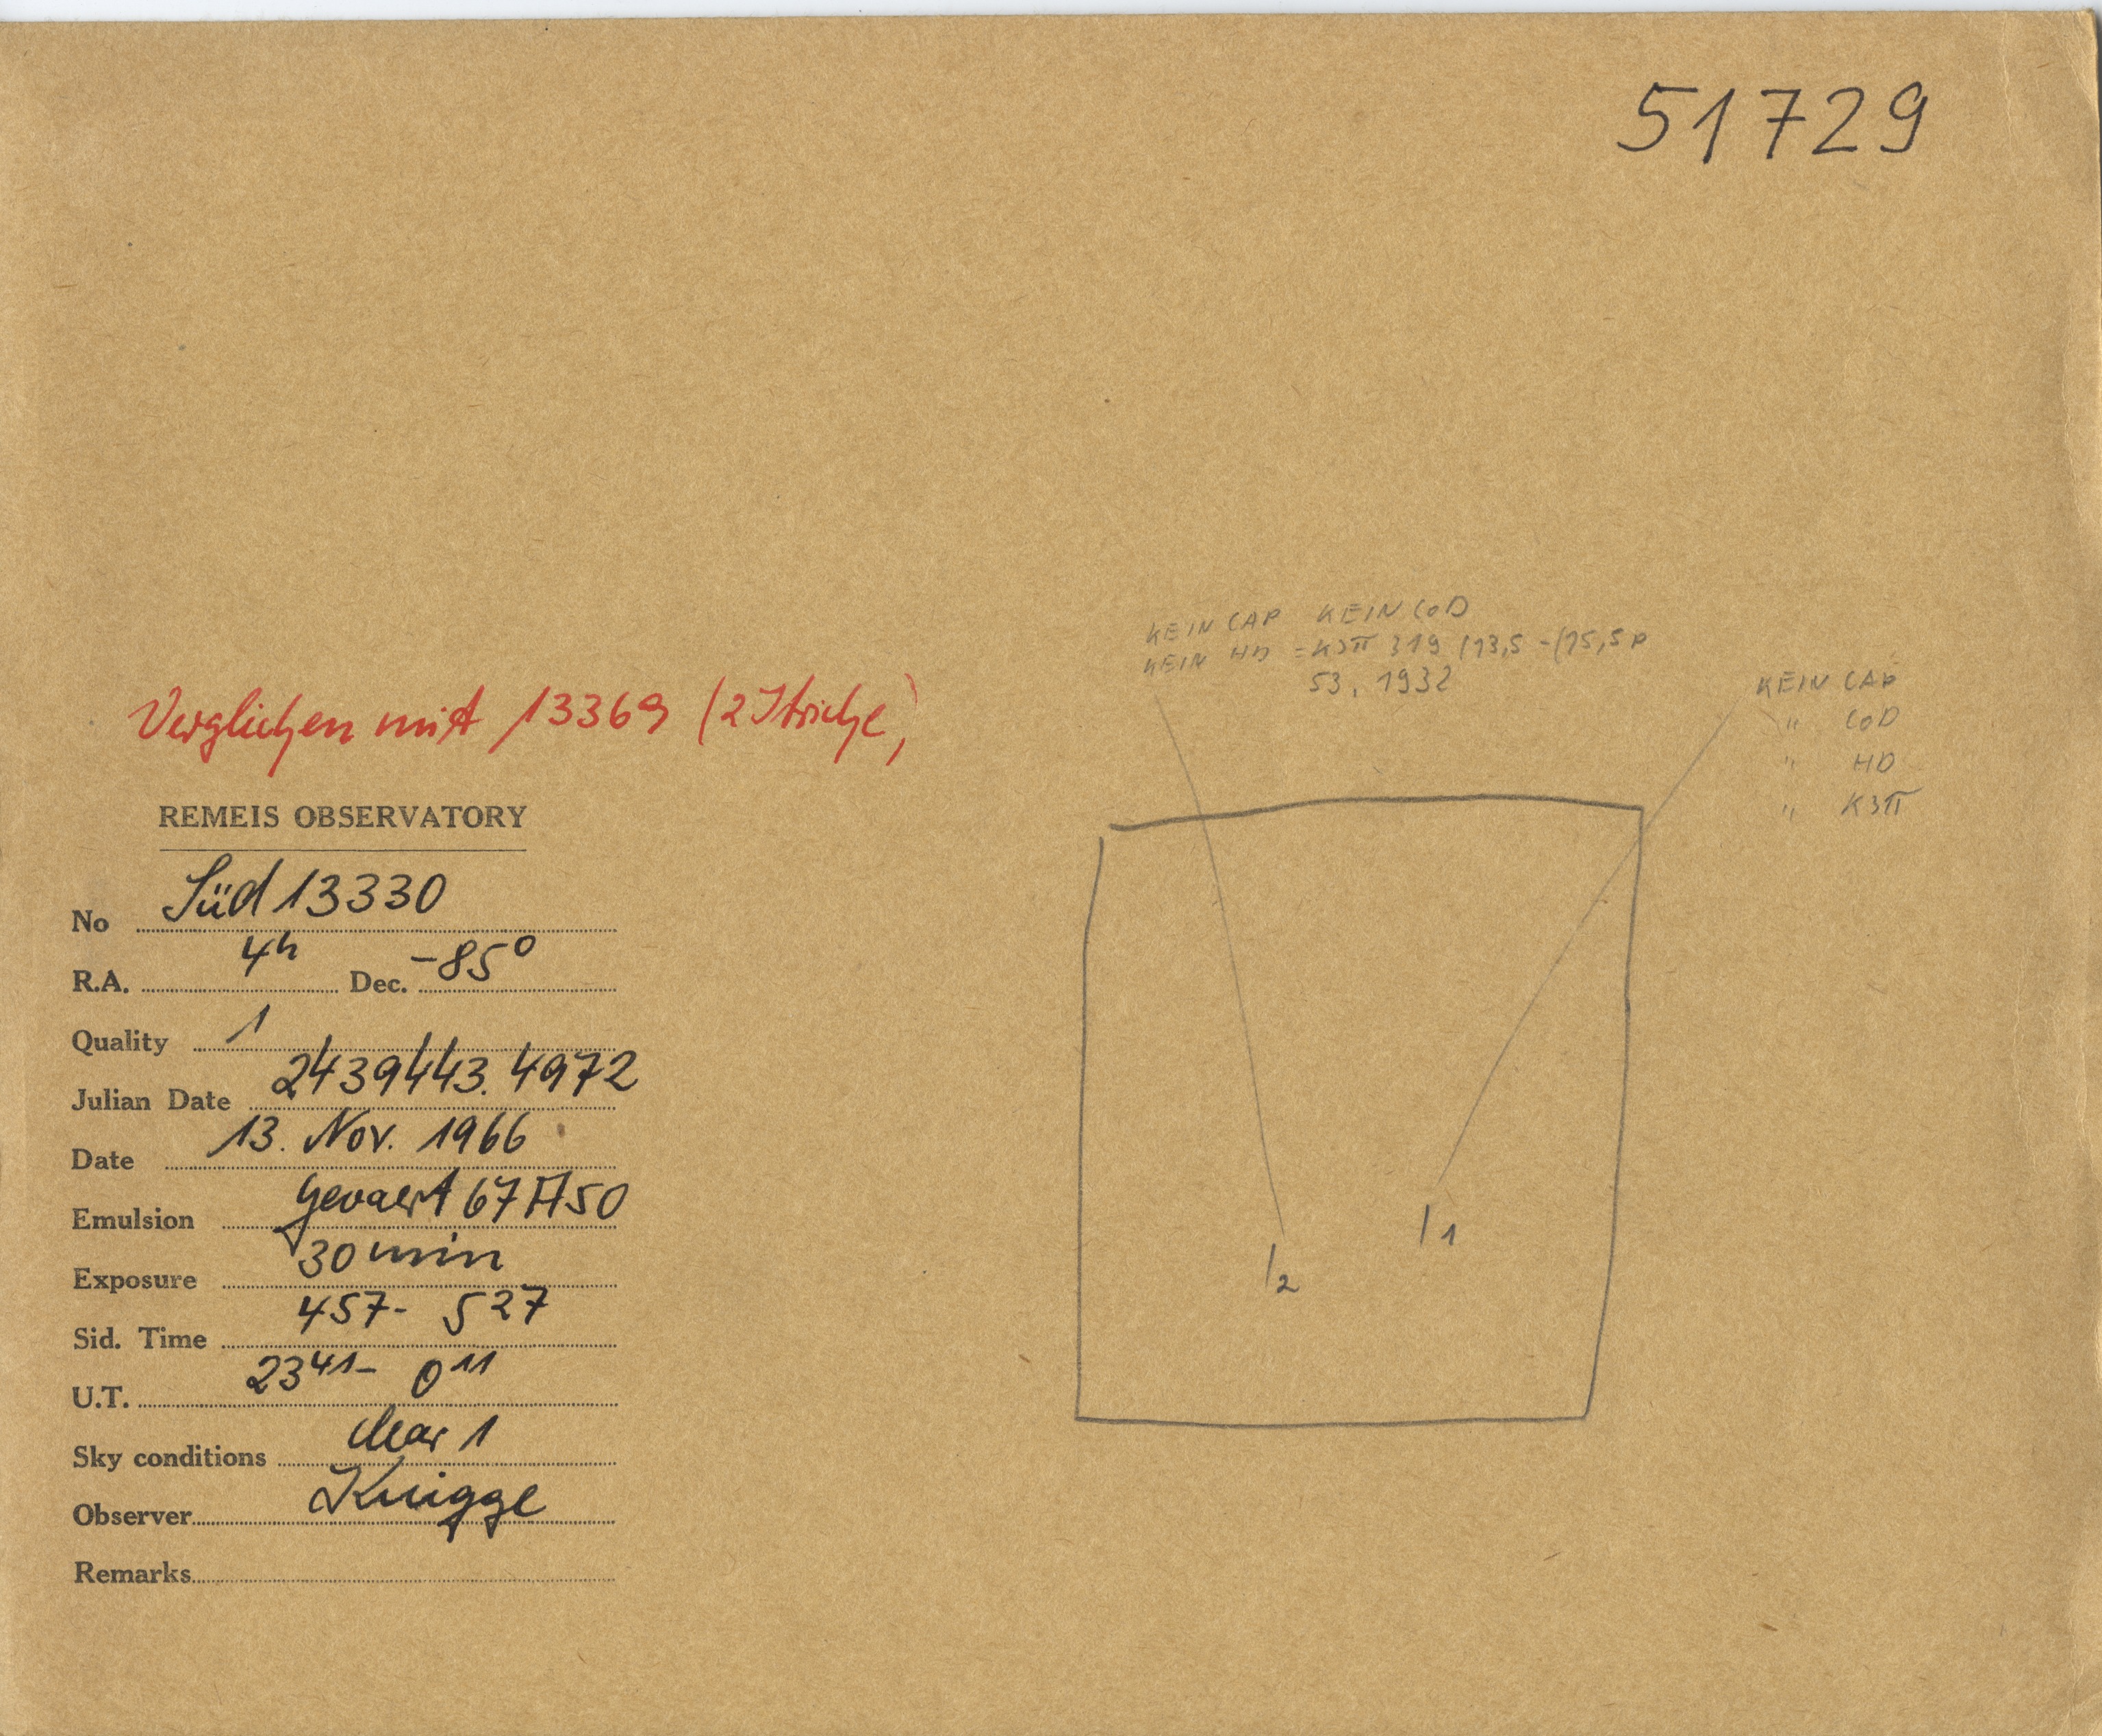 51729
KEIN CAP KEIN CoD
KEIN HD = КЗП 319 (13,5 - (15,5 P
53, 1932
KEIN CAP
" CoD
" HD
" КЗП
Verglichen mit 13369 (2 Striche)
REMEIS OBSERVATORY
No Süd 13330
R.A. 4h Dec. -85°
Quality 1
Julian Date 2439443.4972
Date 13. Nov. 1966
Emulsion Gevaert 67A50
Exposure 30 min
Sid. Time 457- 527
U.T. 23 41- 0 11
Sky conditions clear 1
Observer Knigge
Remarks
1
2